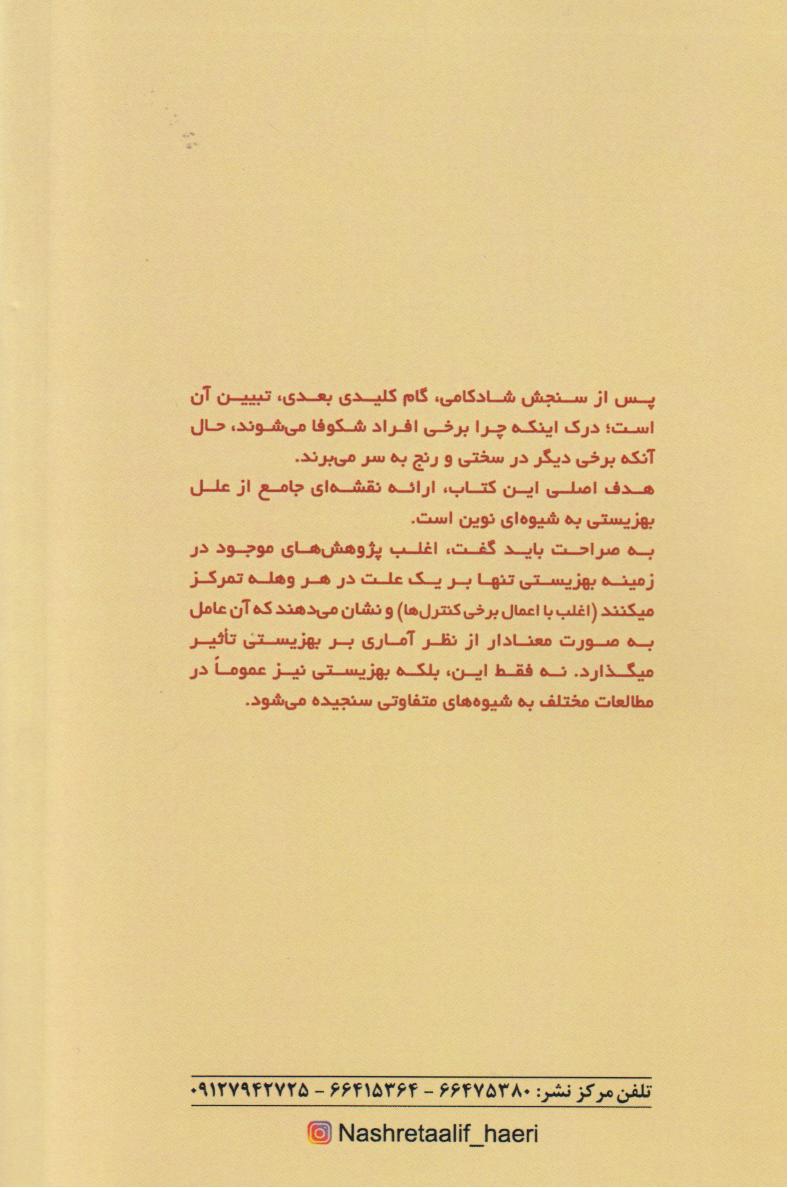 پس از سنجش شادکامی، گام کلیدی بعدی، تبیین آن
است؛ درک اینکه چرا برخی افراد شکوفا می‌شوند، حال
آنکه برخی دیگر در سختی و رنج به سر می‌برند.
هدف اصلی این کتاب، ارائه نقشه‌ای جامع از علل
بهزیستی به شیوه‌ای نوین است.
به صراحت باید گفت، اغلب پژوهش‌های موجود در
زمینه بهزیستی تنها بر یک علت در هر وهله تمرکز
میکنند (اغلب با اعمال برخی کنترل‌ها) و نشان می‌دهند که آن عامل
به صورت معنادار از نظر آماری بر بهزیستی تأثیر
میگذارد. نه فقط این، بلکه بهزیستی نیز عموماً در
مطالعات مختلف به شیوه‌های متفاوتی سنجیده می‌شود.
تلفن مرکز نشر: ۶۶۴۷۵۳۸۰ - ۶۶۴۱۵۳۶۴ - ۰۹۱۲۷۹۴۲۷۲۵
Nashretaalif_haeri